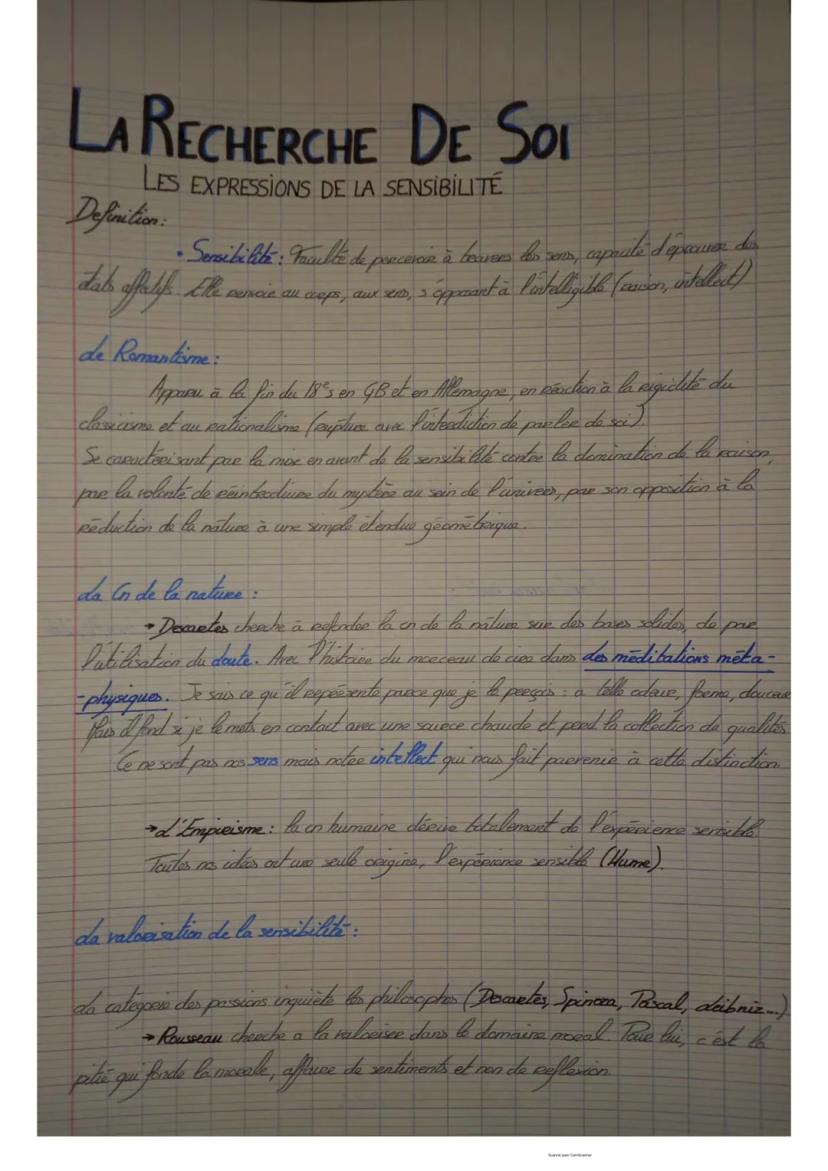 LA RECHERCHE DE SOI
LES EXPRESSIONS DE LA SENSIBILITÉ
Definition:
• Sensibilité : Faculté de percevoir à travers les sens, capacité d'éprouver des
états affectifs. Elle renvoie au corps, aux sens, s'opposant à l'intelligible (raison, intellect)
Le Romantisme :
Apparu à la fin du 18e s en GB et en Allemagne, en réaction à la rigidité du
classicisme et au rationalisme (rupture avec l'interdiction de parler de soi).
Se caractérisant par la mise en avant de la sensibilité contre la domination de la raison,
par la volonté de réintroduire du mystère au sein de l'univers, par son opposition à la
réduction de la nature à une simple étendue géométrique.
La Cn de la nature :
→ Descartes cherche à refonder la cn de la nature sur des bases solides, de par
l'utilisation du doute. Avec l'histoire du morceau de cire dans des méditations méta-
-physiques. Je sais ce qu'il représente parce que je le perçois : a telle odeur, forme, douceur
Mais il fond si je le mets en contact avec une source chaude et perd la collection de qualités
Ce ne sont pas nos sens mais notre intellect qui nous fait parvenir à cette distinction.
→ L'Empirisme : la cn humaine dérive totalement de l'expérience sensible.
Toutes nos idées ont une seule origine, l'expérience sensible (Hume).
La valorisation de la sensibilité :
La catégorie des passions inquiète les philosophes (Descartes, Spinoza, Pascal, Leibniz...).
→ Rousseau cherche a la valoriser dans le domaine moral. Pour lui, c'est la
pitié qui fonde la morale, affaire de sentiments et non de reflexion.
Scanné avec CamScanner